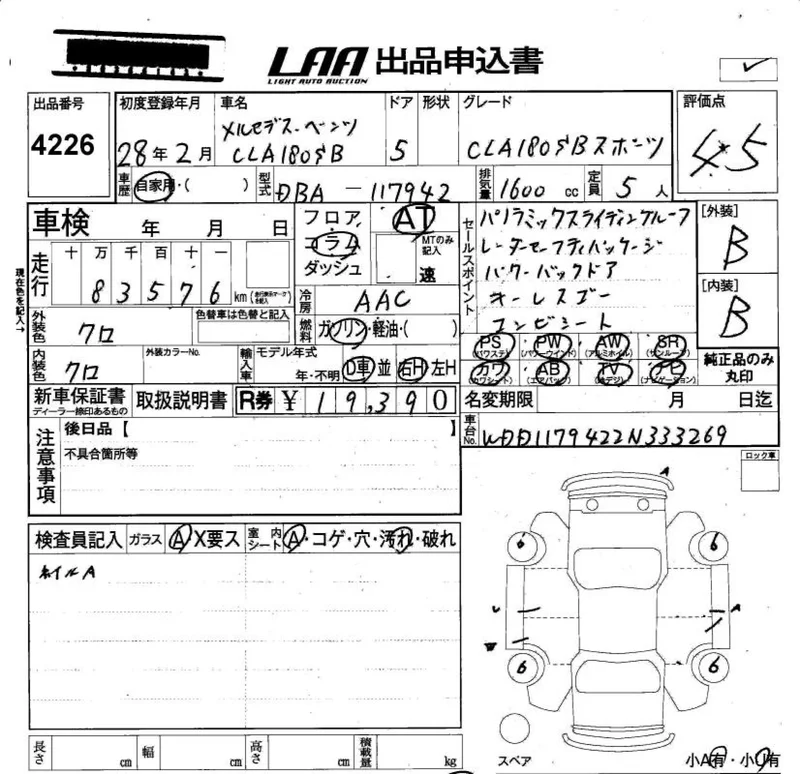 LAA 出品申込書
LIGHT AUTO AUCTION
出品番号 4226
初度登録年月 28年2月
車名 メルセデス・ベンツ CLA180SB
ドア 5
形状
グレード CLA180SBスポーツ
評価点 4.5
車歴 自家用・( )
型式 DBA-117942
排気量 1600 cc
定員 5人
車検 年 月 日
フロア
コラム
ダッシュ
AT
MTのみ記入
速
セールスポイント
パノラミックスライディングルーフ
レーダーセーフティパッケージ
パワーバックドア
キーレスゴー
コンビシート
[外装] B
[内装] B
現在色を記入→
走行 十 万 千 百 十 一
83576 km
冷房 AAC
燃料 ガソリン・軽油・( )
外装色 クロ
色替車は色替と記入
内装色 クロ
外装カラーNo.
輸入車 モデル年式
年・不明
D車 並 右H 左H
PS (パワステ)
PW (パワーウインド)
AW (アルミホイル)
SR (サンルーフ)
カワ (カワシート)
AB (エアバッグ)
TV (地デジ)
ナビ (ナビゲーション)
純正品のみ丸印
新車保証書
ディーラー線印あるもの
取扱説明書
R券 ¥19,390
名変期限 月 日迄
注意事項
後日品【 】
不具合箇所等
車台No. WDD1179422N333269
ロック車
検査員記入
ガラス A・X要ス
室内シート A・コゲ・穴・汚れ・破れ
ホイルA
A
6
6
U
A
W
6
6
スペア
小A有・小U有
長さ cm
幅 cm
高さ cm
積載量 kg